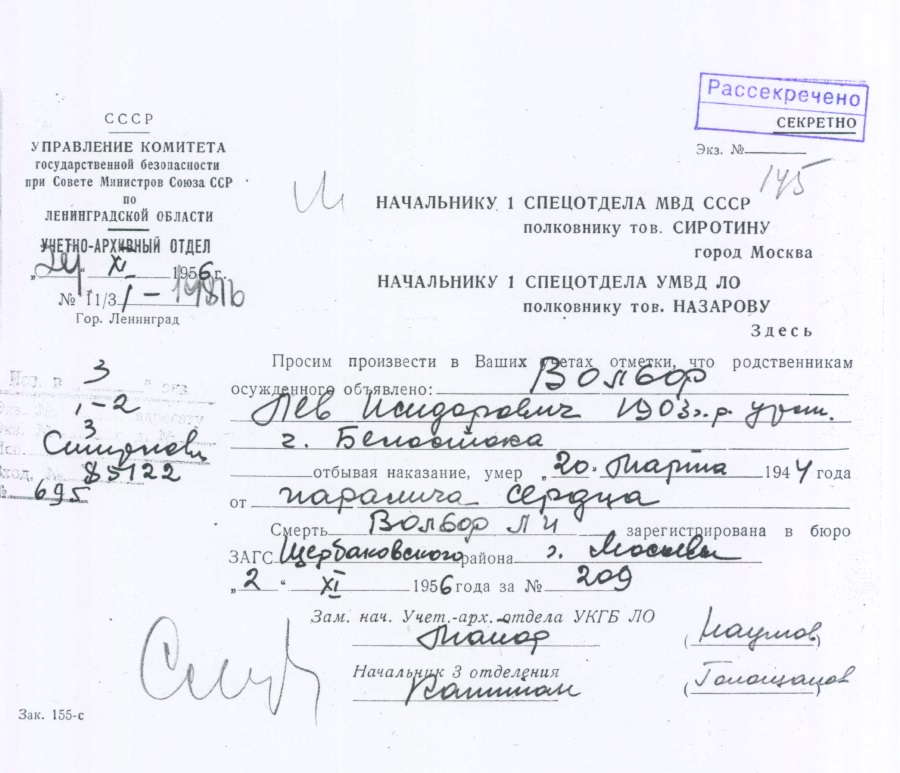 Рассекречено
СЕКРЕТНО
Экз. №
145
СССР
УПРАВЛЕНИЕ КОМИТЕТА
государственной безопасности
при Совете Министров Союза ССР
по
ЛЕНИНГРАДСКОЙ ОБЛАСТИ
УЧЕТНО-АРХИВНЫЙ ОТДЕЛ
„24“ XI 1956 г.
№ 11/3
Гор. Ленинград
НАЧАЛЬНИКУ 1 СПЕЦОТДЕЛА МВД СССР
полковнику тов. СИРОТИНУ
город Москва
НАЧАЛЬНИКУ 1 СПЕЦОТДЕЛА УМВД ЛО
полковнику тов. НАЗАРОВУ
Здесь
3
1-2
3
85122
№ 695
Просим произвести в Ваших учетах отметки, что родственникам
осужденного объявлено: Волбор
Лев Исидорович 1903 г.р. урож.
г. Белостока
отбывая наказание, умер „20“ марта 1944 года
от паралича сердца
Смерть Волбор Л И зарегистрирована в бюро
ЗАГС Щербаковского района г. Москвы
„2“ XI 1956 года за № 209
Зам. нач. Учет.-арх. отдела УКГБ ЛО
Майор (Наумов)
Начальник 3 отделения
Капитан (Голощапов
Зак. 155-с